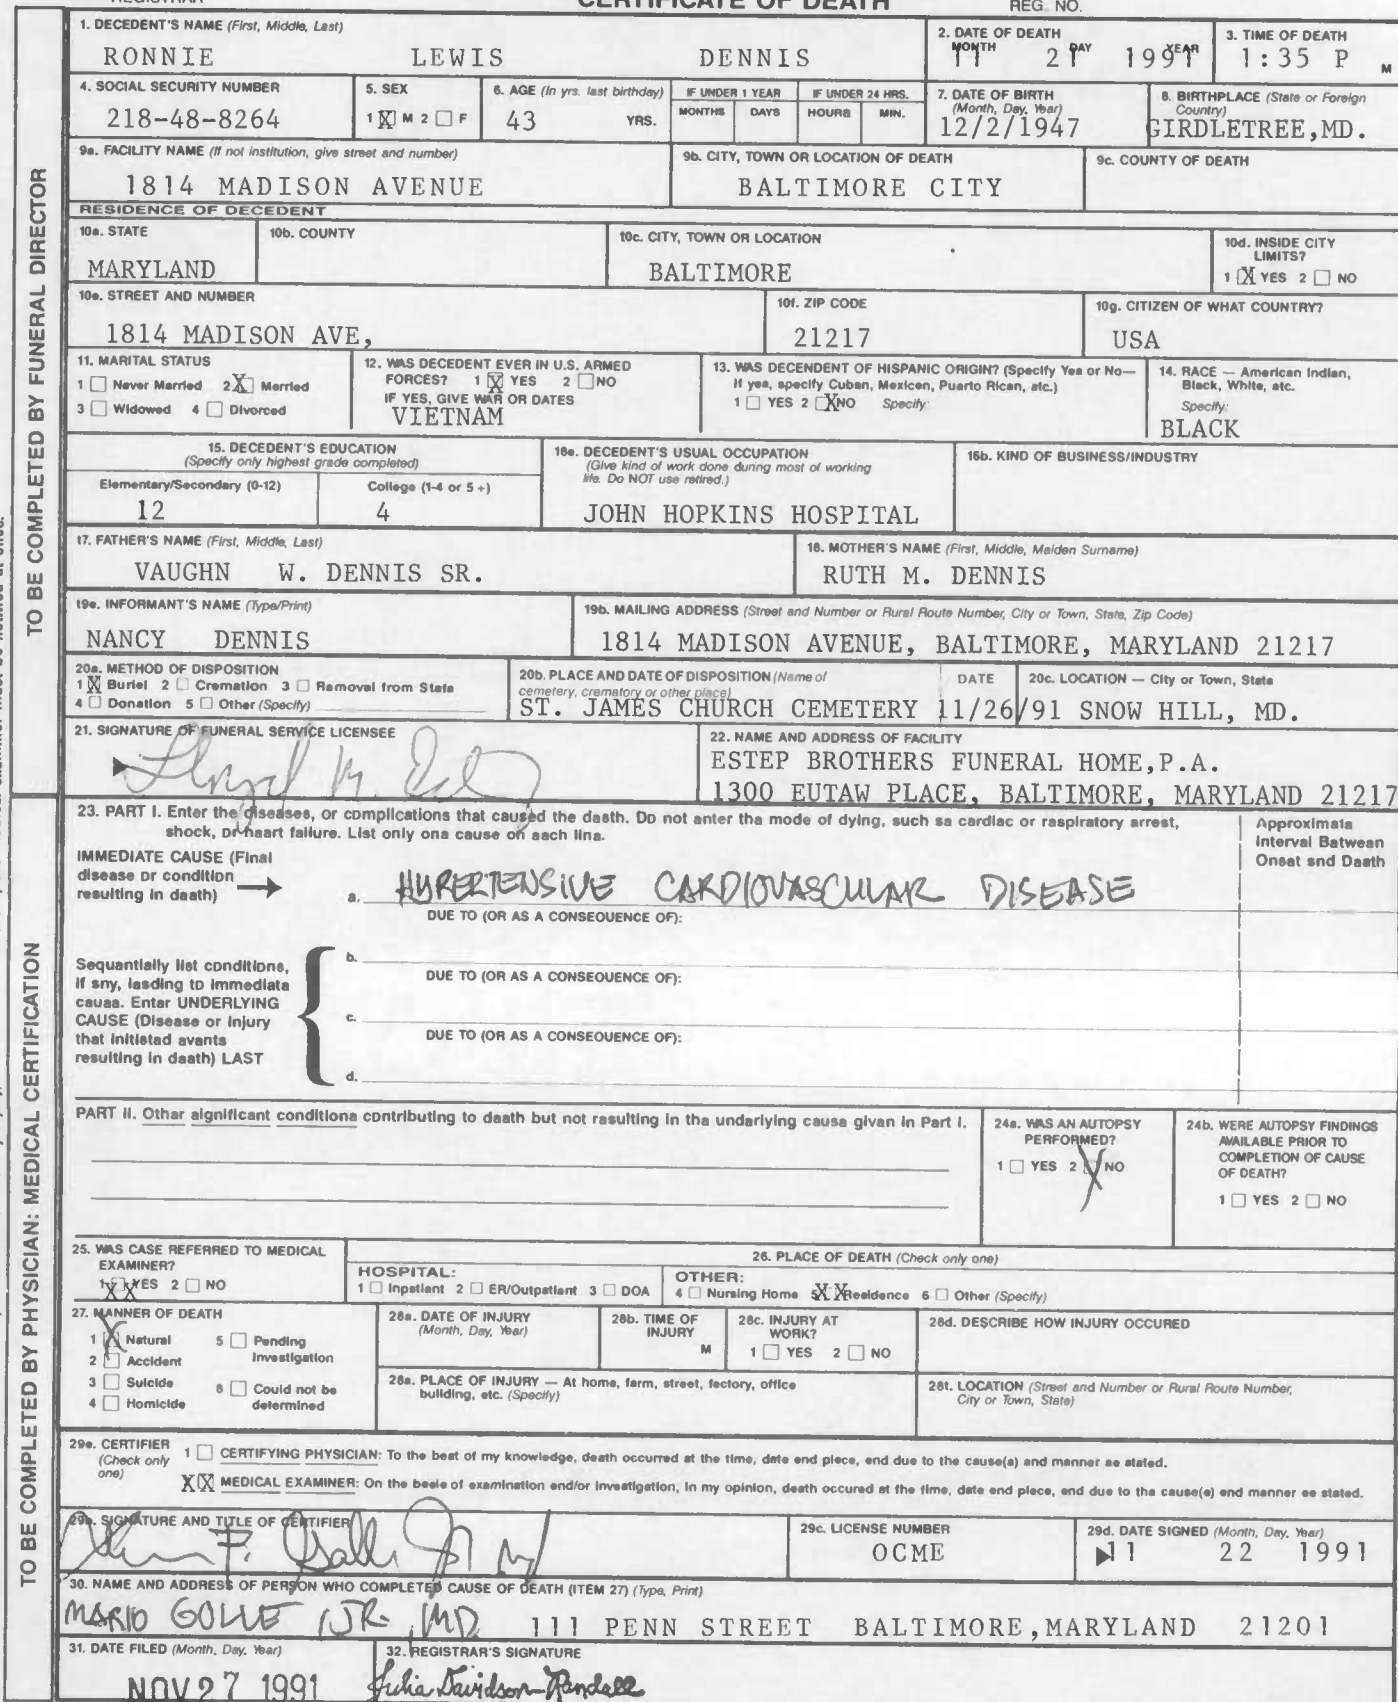 REGISTRAR
CERTIFICATE OF DEATH
REG. NO.
1. DECEDENT'S NAME (First, Middle, Last)
RONNIE LEWIS DENNIS
2. DATE OF DEATH
MONTH DAY YEAR
11 21 1991
3. TIME OF DEATH
1:35 P M
4. SOCIAL SECURITY NUMBER
218-48-8264
5. SEX
1 X M 2 F
6. AGE (In yrs. last birthday)
43 YRS.
IF UNDER 1 YEAR
MONTHS DAYS
IF UNDER 24 HRS.
HOURS MIN.
7. DATE OF BIRTH
(Month, Day, Year)
12/2/1947
8. BIRTHPLACE (State or Foreign
Country)
GIRDLETREE,MD.
9a. FACILITY NAME (If not institution, give street and number)
1814 MADISON AVENUE
9b. CITY, TOWN OR LOCATION OF DEATH
BALTIMORE CITY
9c. COUNTY OF DEATH
RESIDENCE OF DECEDENT
10a. STATE
MARYLAND
10b. COUNTY
10c. CITY, TOWN OR LOCATION
BALTIMORE
10d. INSIDE CITY
LIMITS?
1 X YES 2 NO
10e. STREET AND NUMBER
1814 MADISON AVE,
10f. ZIP CODE
21217
10g. CITIZEN OF WHAT COUNTRY?
USA
11. MARITAL STATUS
1 Never Married 2 X Married
3 Widowed 4 Divorced
12. WAS DECEDENT EVER IN U.S. ARMED
FORCES? 1 X YES 2 NO
IF YES, GIVE WAR OR DATES
VIETNAM
13. WAS DECENDENT OF HISPANIC ORIGIN? (Specify Yes or No—
If yes, specify Cuban, Mexican, Puerto Rican, etc.)
1 YES 2 X NO Specify:
14. RACE — American Indian,
Black, White, etc.
Specify:
BLACK
15. DECEDENT'S EDUCATION
(Specify only highest grade completed)
Elementary/Secondary (0-12)
12
College (1-4 or 5+)
4
16a. DECEDENT'S USUAL OCCUPATION
(Give kind of work done during most of working
life. Do NOT use retired.)
JOHN HOPKINS HOSPITAL
16b. KIND OF BUSINESS/INDUSTRY
17. FATHER'S NAME (First, Middle, Last)
VAUGHN W. DENNIS SR.
18. MOTHER'S NAME (First, Middle, Maiden Surname)
RUTH M. DENNIS
19a. INFORMANT'S NAME (Type/Print)
NANCY DENNIS
19b. MAILING ADDRESS (Street and Number or Rural Route Number, City or Town, State, Zip Code)
1814 MADISON AVENUE, BALTIMORE, MARYLAND 21217
20a. METHOD OF DISPOSITION
1 X Burial 2 Cremation 3 Removal from State
4 Donation 5 Other (Specify)
20b. PLACE AND DATE OF DISPOSITION (Name of
cemetery, crematory or other place)
DATE
ST. JAMES CHURCH CEMETERY 11/26/91
20c. LOCATION — City or Town, State
SNOW HILL, MD.
21. SIGNATURE OF FUNERAL SERVICE LICENSEE
22. NAME AND ADDRESS OF FACILITY
ESTEP BROTHERS FUNERAL HOME,P.A.
1300 EUTAW PLACE, BALTIMORE, MARYLAND 21217
TO BE COMPLETED BY FUNERAL DIRECTOR
23. PART I. Enter the diseases, or complications that caused the death. Do not enter the mode of dying, such as cardiac or respiratory arrest,
shock, or heart failure. List only one cause on each line.
Approximate
Interval Between
Onset and Death
IMMEDIATE CAUSE (Final
disease or condition
resulting in death)
a. HYPERTENSIVE CARDIOVASCULAR DISEASE
DUE TO (OR AS A CONSEQUENCE OF):
Sequentially list conditions,
if any, leading to immediate
cause. Enter UNDERLYING
CAUSE (Disease or injury
that initiated events
resulting in death) LAST
b.
DUE TO (OR AS A CONSEQUENCE OF):
c.
DUE TO (OR AS A CONSEQUENCE OF):
d.
PART II. Other significant conditions contributing to death but not resulting in the underlying cause given in Part I.
24a. WAS AN AUTOPSY
PERFORMED?
1 YES 2 X NO
24b. WERE AUTOPSY FINDINGS
AVAILABLE PRIOR TO
COMPLETION OF CAUSE
OF DEATH?
1 YES 2 NO
25. WAS CASE REFERRED TO MEDICAL
EXAMINER?
1 XX YES 2 NO
26. PLACE OF DEATH (Check only one)
HOSPITAL:
1 Inpatient 2 ER/Outpatient 3 DOA
OTHER:
4 Nursing Home 5 XX Residence 6 Other (Specify)
27. MANNER OF DEATH
1 X Natural 5 Pending
2 Accident Investigation
3 Suicide 6 Could not be
4 Homicide determined
28a. DATE OF INJURY
(Month, Day, Year)
28b. TIME OF
INJURY
M
28c. INJURY AT
WORK?
1 YES 2 NO
28d. DESCRIBE HOW INJURY OCCURED
28e. PLACE OF INJURY — At home, farm, street, factory, office
building, etc. (Specify)
28f. LOCATION (Street and Number or Rural Route Number,
City or Town, State)
29a. CERTIFIER
(Check only
one)
1 CERTIFYING PHYSICIAN: To the best of my knowledge, death occurred at the time, date and place, and due to the cause(s) and manner as stated.
XX MEDICAL EXAMINER: On the basis of examination and/or investigation, in my opinion, death occured at the time, date and place, and due to the cause(s) and manner as stated.
29b. SIGNATURE AND TITLE OF CERTIFIER
29c. LICENSE NUMBER
OCME
29d. DATE SIGNED (Month, Day, Year)
11 22 1991
30. NAME AND ADDRESS OF PERSON WHO COMPLETED CAUSE OF DEATH (ITEM 27) (Type, Print)
MARIO GOLLE, JR., MD 111 PENN STREET BALTIMORE,MARYLAND 21201
31. DATE FILED (Month, Day, Year)
NOV 27 1991
32. REGISTRAR'S SIGNATURE
Julia Davidson-Randall
TO BE COMPLETED BY PHYSICIAN: MEDICAL CERTIFICATION